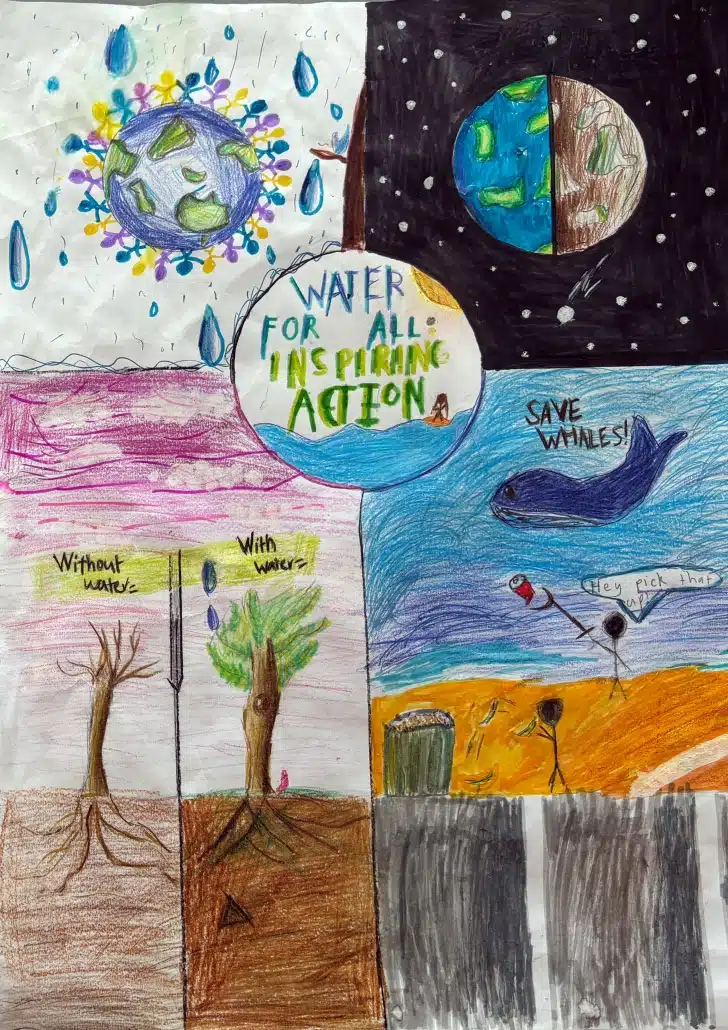 WATER
FOR ALL:
INSPIRING
ACTION
SAVE
WHALES!
Without
water=
With
water=
Hey pick that
up!